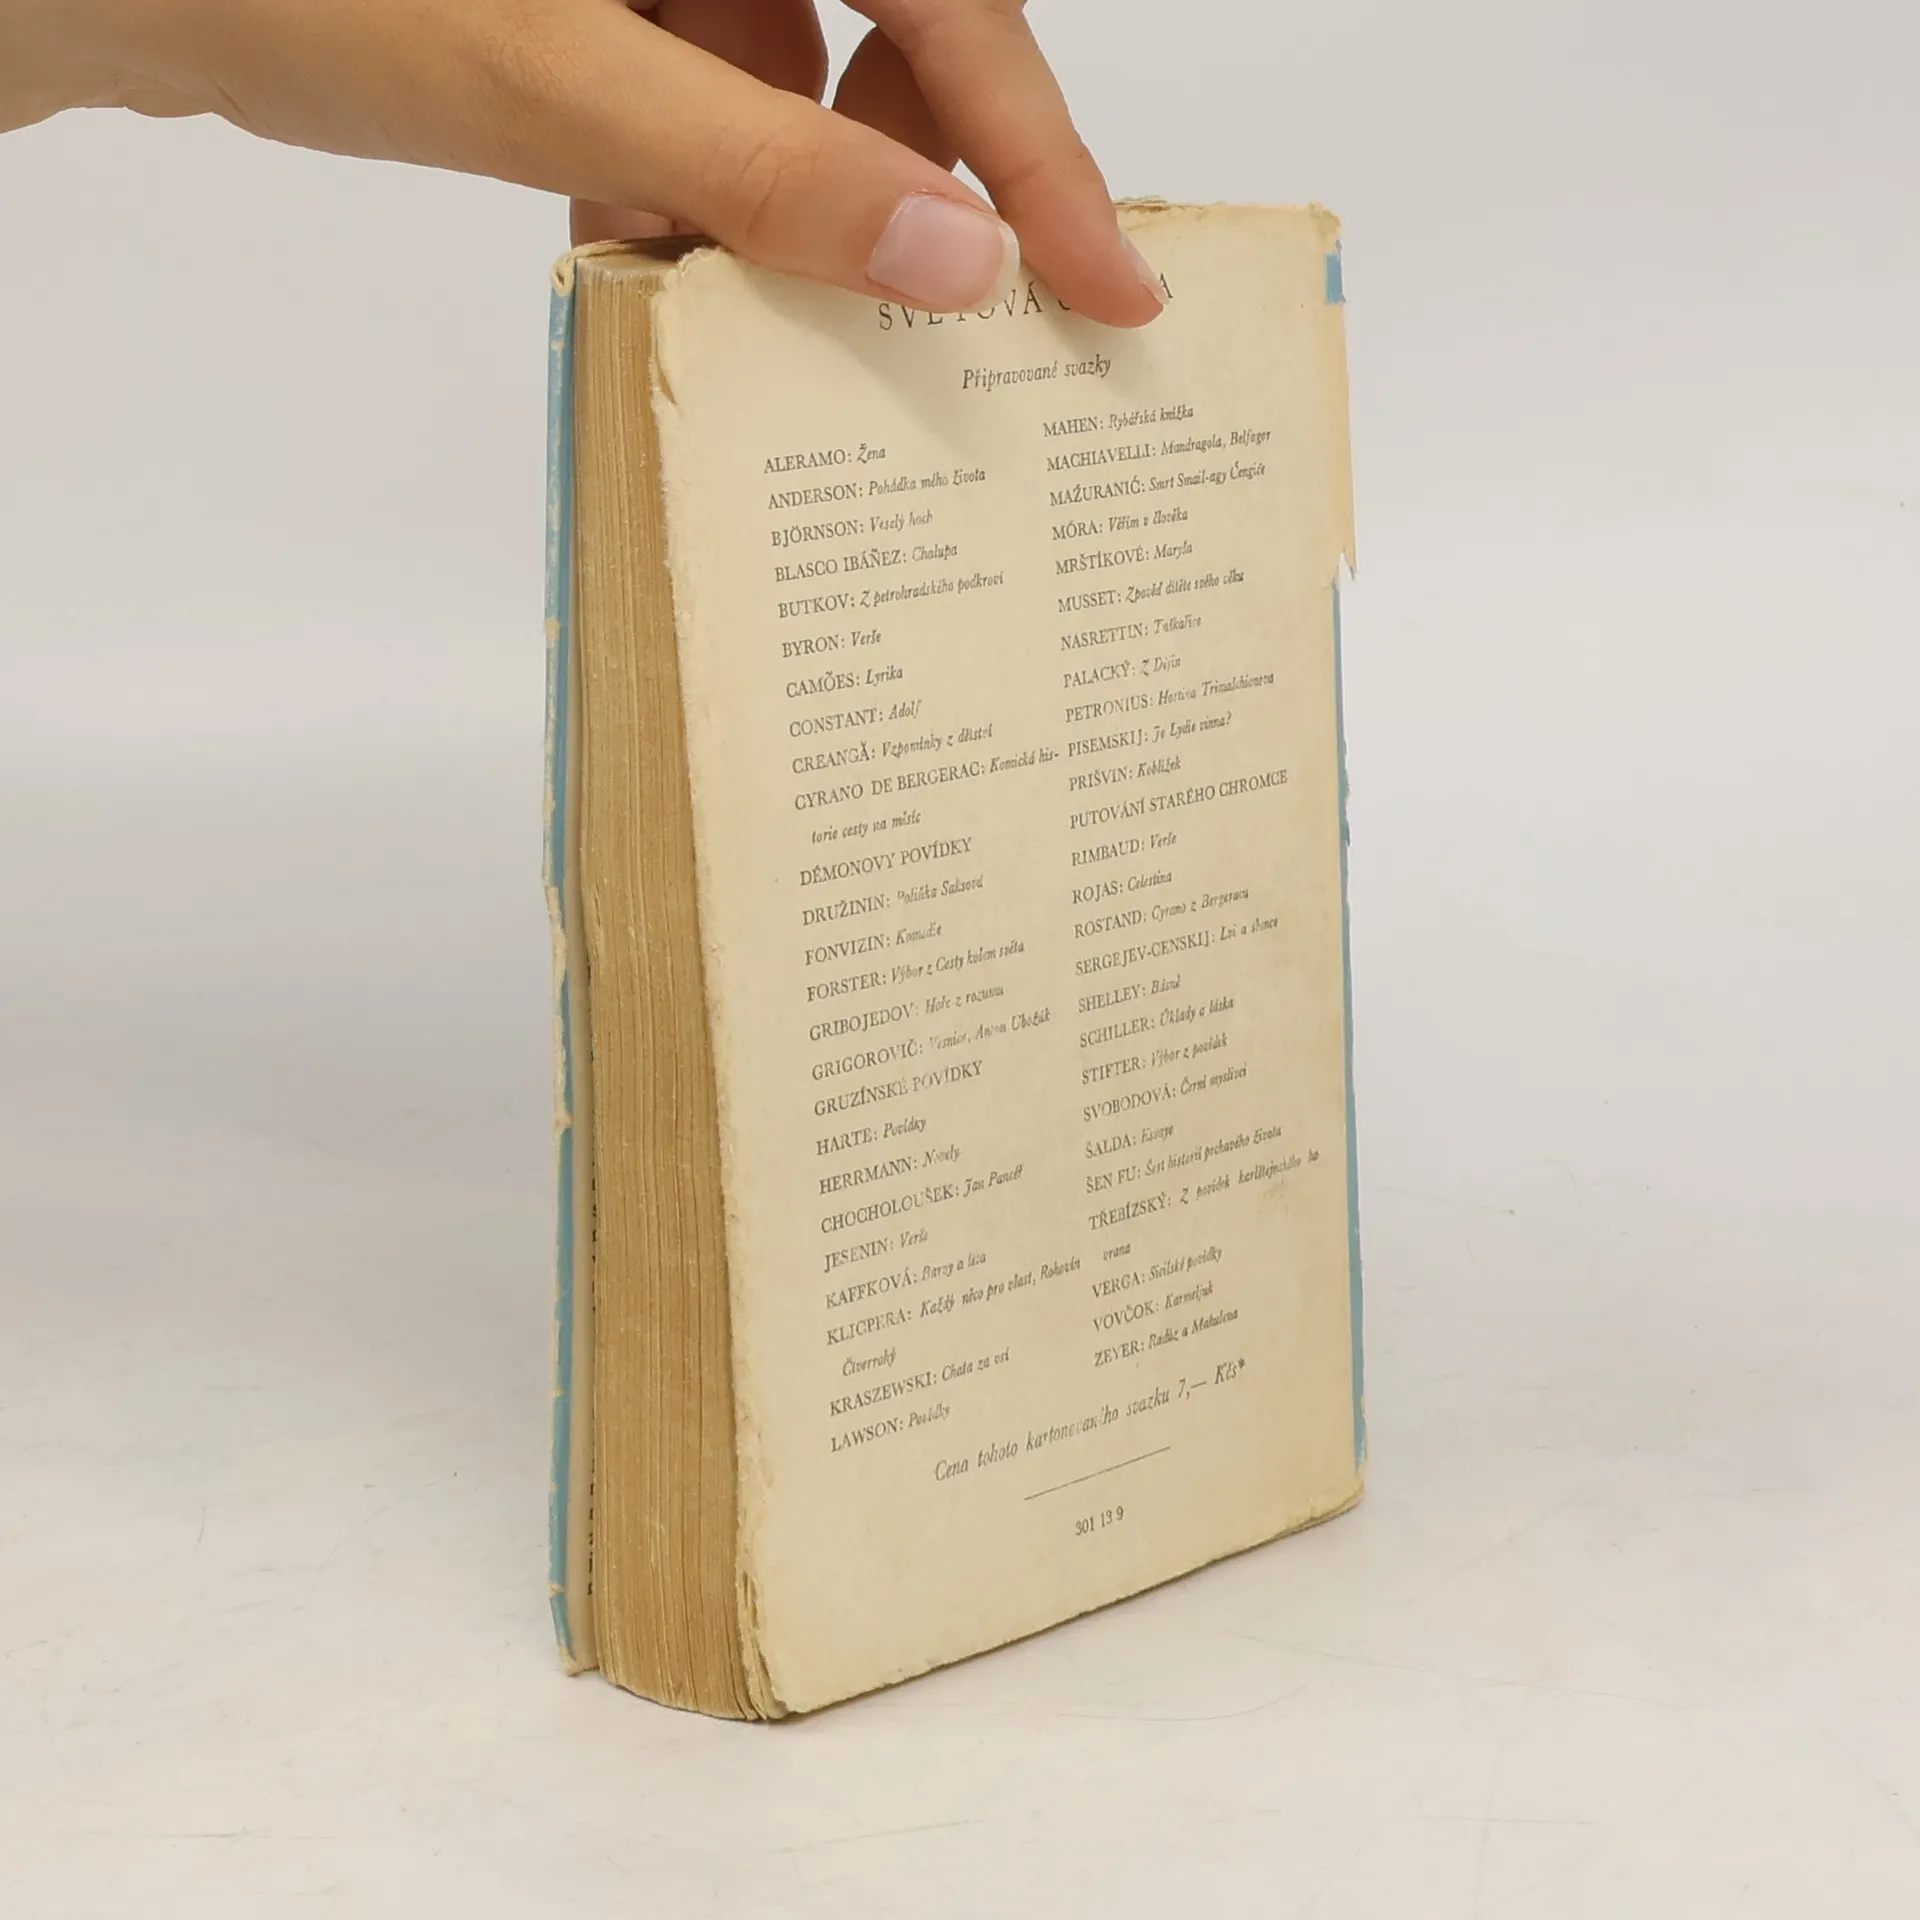 SVĚTOVÁ
Připravované svazky
ALERAMO: Žena
ANDERSON: Pohádka mého života
BJÖRNSON: Veselý hoch
BLASCO IBÁÑEZ: Chalupa
BUTKOV: Z petrohradského podkroví
BYRON: Verše
CAMÕES: Lyrika
CONSTANT: Adolf
CREANGĂ: Vzpomínky z dětství
CYRANO DE BERGERAC: Komická his-
torie cesty na měsíc
DÉMONOVY POVÍDKY
DRUŽININ: Polinka Saksová
FONVIZIN: Komedie
FORSTER: Výbor z Cesty kolem světa
GRIBOJEDOV: Hoře z rozumu
GRIGOROVIČ: Vesnice, Anton Ubožák
GRUZÍNSKÉ POVÍDKY
HARTE: Povídky
HERRMANN: Novely
CHOCHOLOUŠEK: Jan Pancéř
JESENIN: Verše
KAFFKOVÁ: Barvy a léta
KLICPERA: Každý něco pro vlast, Rohovín
Čtverrohý
KRASZEWSKI: Chata za vsí
LAWSON: Povídky
MAHEN: Rybářská knížka
MACHIAVELLI: Mandragola, Belfagor
MAŽURANIĆ: Smrt Smail-agy Čengiće
MÓRA: Věřím v člověka
MRŠTÍKOVÉ: Maryša
MUSSET: Zpověď dítěte svého věku
NASRETTIN: Taškařice
PALACKÝ: Z Dějin
PETRONIUS: Hostina Trimalchionova
PISEMSKIJ: Je Lydie vinna?
PRIŠVIN: Koblížek
PUTOVÁNÍ STARÉHO CHROMCE
RIMBAUD: Verše
ROJAS: Celestina
ROSTAND: Cyrano z Bergeracu
SERGEJEV-CENSKIJ: Lvi a slunce
SHELLEY: Básně
SCHILLER: Úklady a láska
STIFTER: Výbor z povídek
SVOBODOVÁ: Černí myslivci
ŠALDA: Essaye
ŠEN FU: Šest historií prchavého života
TŘEBÍZSKÝ: Z povídek karlštejnského ha-
vrana
VERGA: Sicilské povídky
VOVČOK: Karmeljuk
ZEYER: Radúz a Mahulena
Cena tohoto kartonovaného svazku 7,— Kčs*
301 13 9